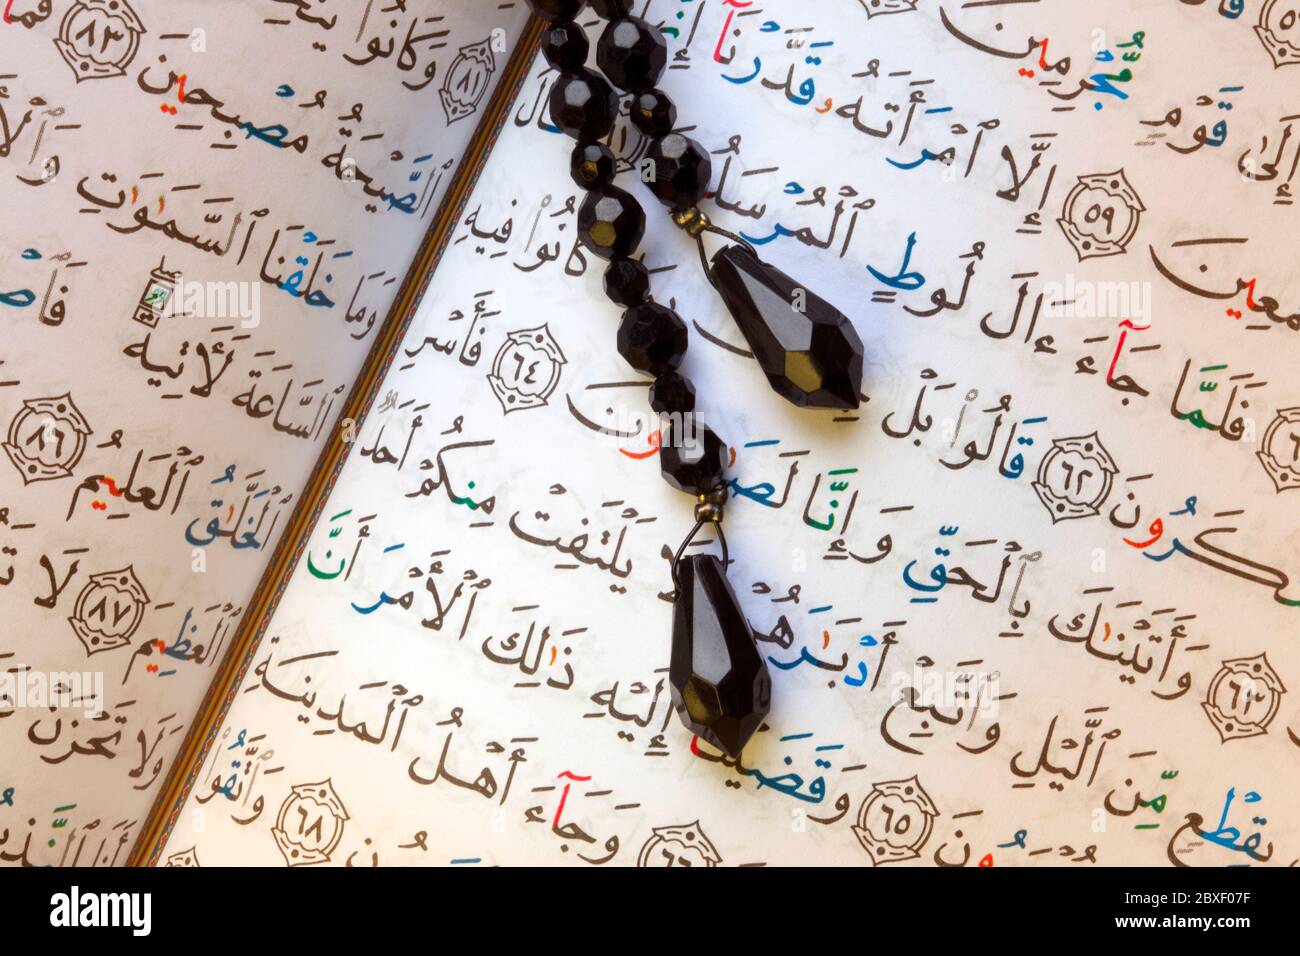 إِلَىٰ قَوْمٍ مُّجْرِمِينَ
مَعِينَ ٥٩ إِلَّا ٱمْرَأَتَهُۥ قَدَّرْنَآ إِنَّ
فَلَمَّا جَآءَ ءَالَ لُوطٍ ٱلْمُرْسَلُ قَالَ
كَرُونَ ٦٢ قَالُوا۟ بَلْ كَانُوا۟ فِيهِ
٦٣ وَأَتَيْنَٰكَ بِٱلْحَقِّ وَإِنَّا لَصَ ونَ ٦٤ فَأَسْرِ
بِقِطْعٍ مِّنَ ٱلَّيْلِ وَٱتَّبِعْ أَدْبَٰرَهُ يَلْتَفِتْ مِنكُمْ أَحَدٌ
رُونَ ٦٥ وَقَضَيْنَآ إِلَيْهِ ذَٰلِكَ ٱلْأَمْرَ أَنَّ
٦٦ وَجَآءَ أَهْلُ ٱلْمَدِينَةِ
ونِ ٦٨ وَٱتَّقُوا۟
٨١ وَكَانُوا۟
ٱلصَّيْحَةُ مُصْبِحِينَ ٨٣ فَمَا
وَمَا خَلَقْنَا ٱلسَّمَٰوَٰتِ وَٱلْأَ
ٱلسَّاعَةَ لَأَتِيَةٌ فَٱصْ
ٱلْخَلَّٰقُ ٱلْعَلِيمُ ٨٦
ٱلْعَظِيمَ ٨٧ لَا تَ
وَلَا تَحْزَنْ
أَنَا ٱلنَّذِي
alamy
Image ID: 2BXF07F
www.alamy.com